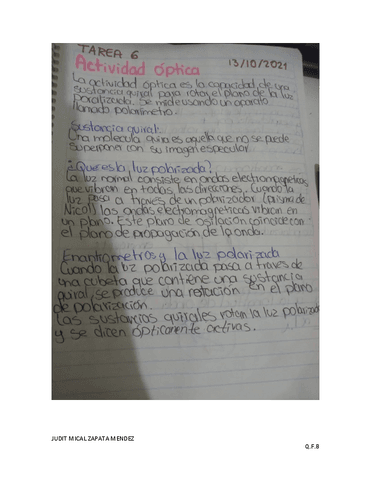 TAREA 6
13/10/2021
Actividad óptica
La actividad óptica es la capacidad de una
sustancia quiral para rotar el plano de la luz
polarizada. Se mide usando un aparato
llamado polarímetro.
Sustancia quiral:
Una molecula quiral es aquella que no se puede
superpona con su imagen especular.
¿Que es la luz polarizada?
La luz normal consiste en ondas electromagneticas
que vibran en todas las direcciones. Cuando la
luz pasa a traves de un polarizador (prisma de
Nicol) las ondas electromagneticas vibran en
un plano. Este plano de oscilación coincide con
el plano de propagación de la onda.
Enantiometros y la luz polarizada
Cuando la luz polarizada pasa a través de
una cubeta que contiene una sustancia
quiral, se produce una rotación en el plano
de polarización.
Las sustancias quirales rotan la luz polarizada
y se dicen ópticamente activas.
JUDIT MICAL ZAPATA MENDEZ
Q.F.B